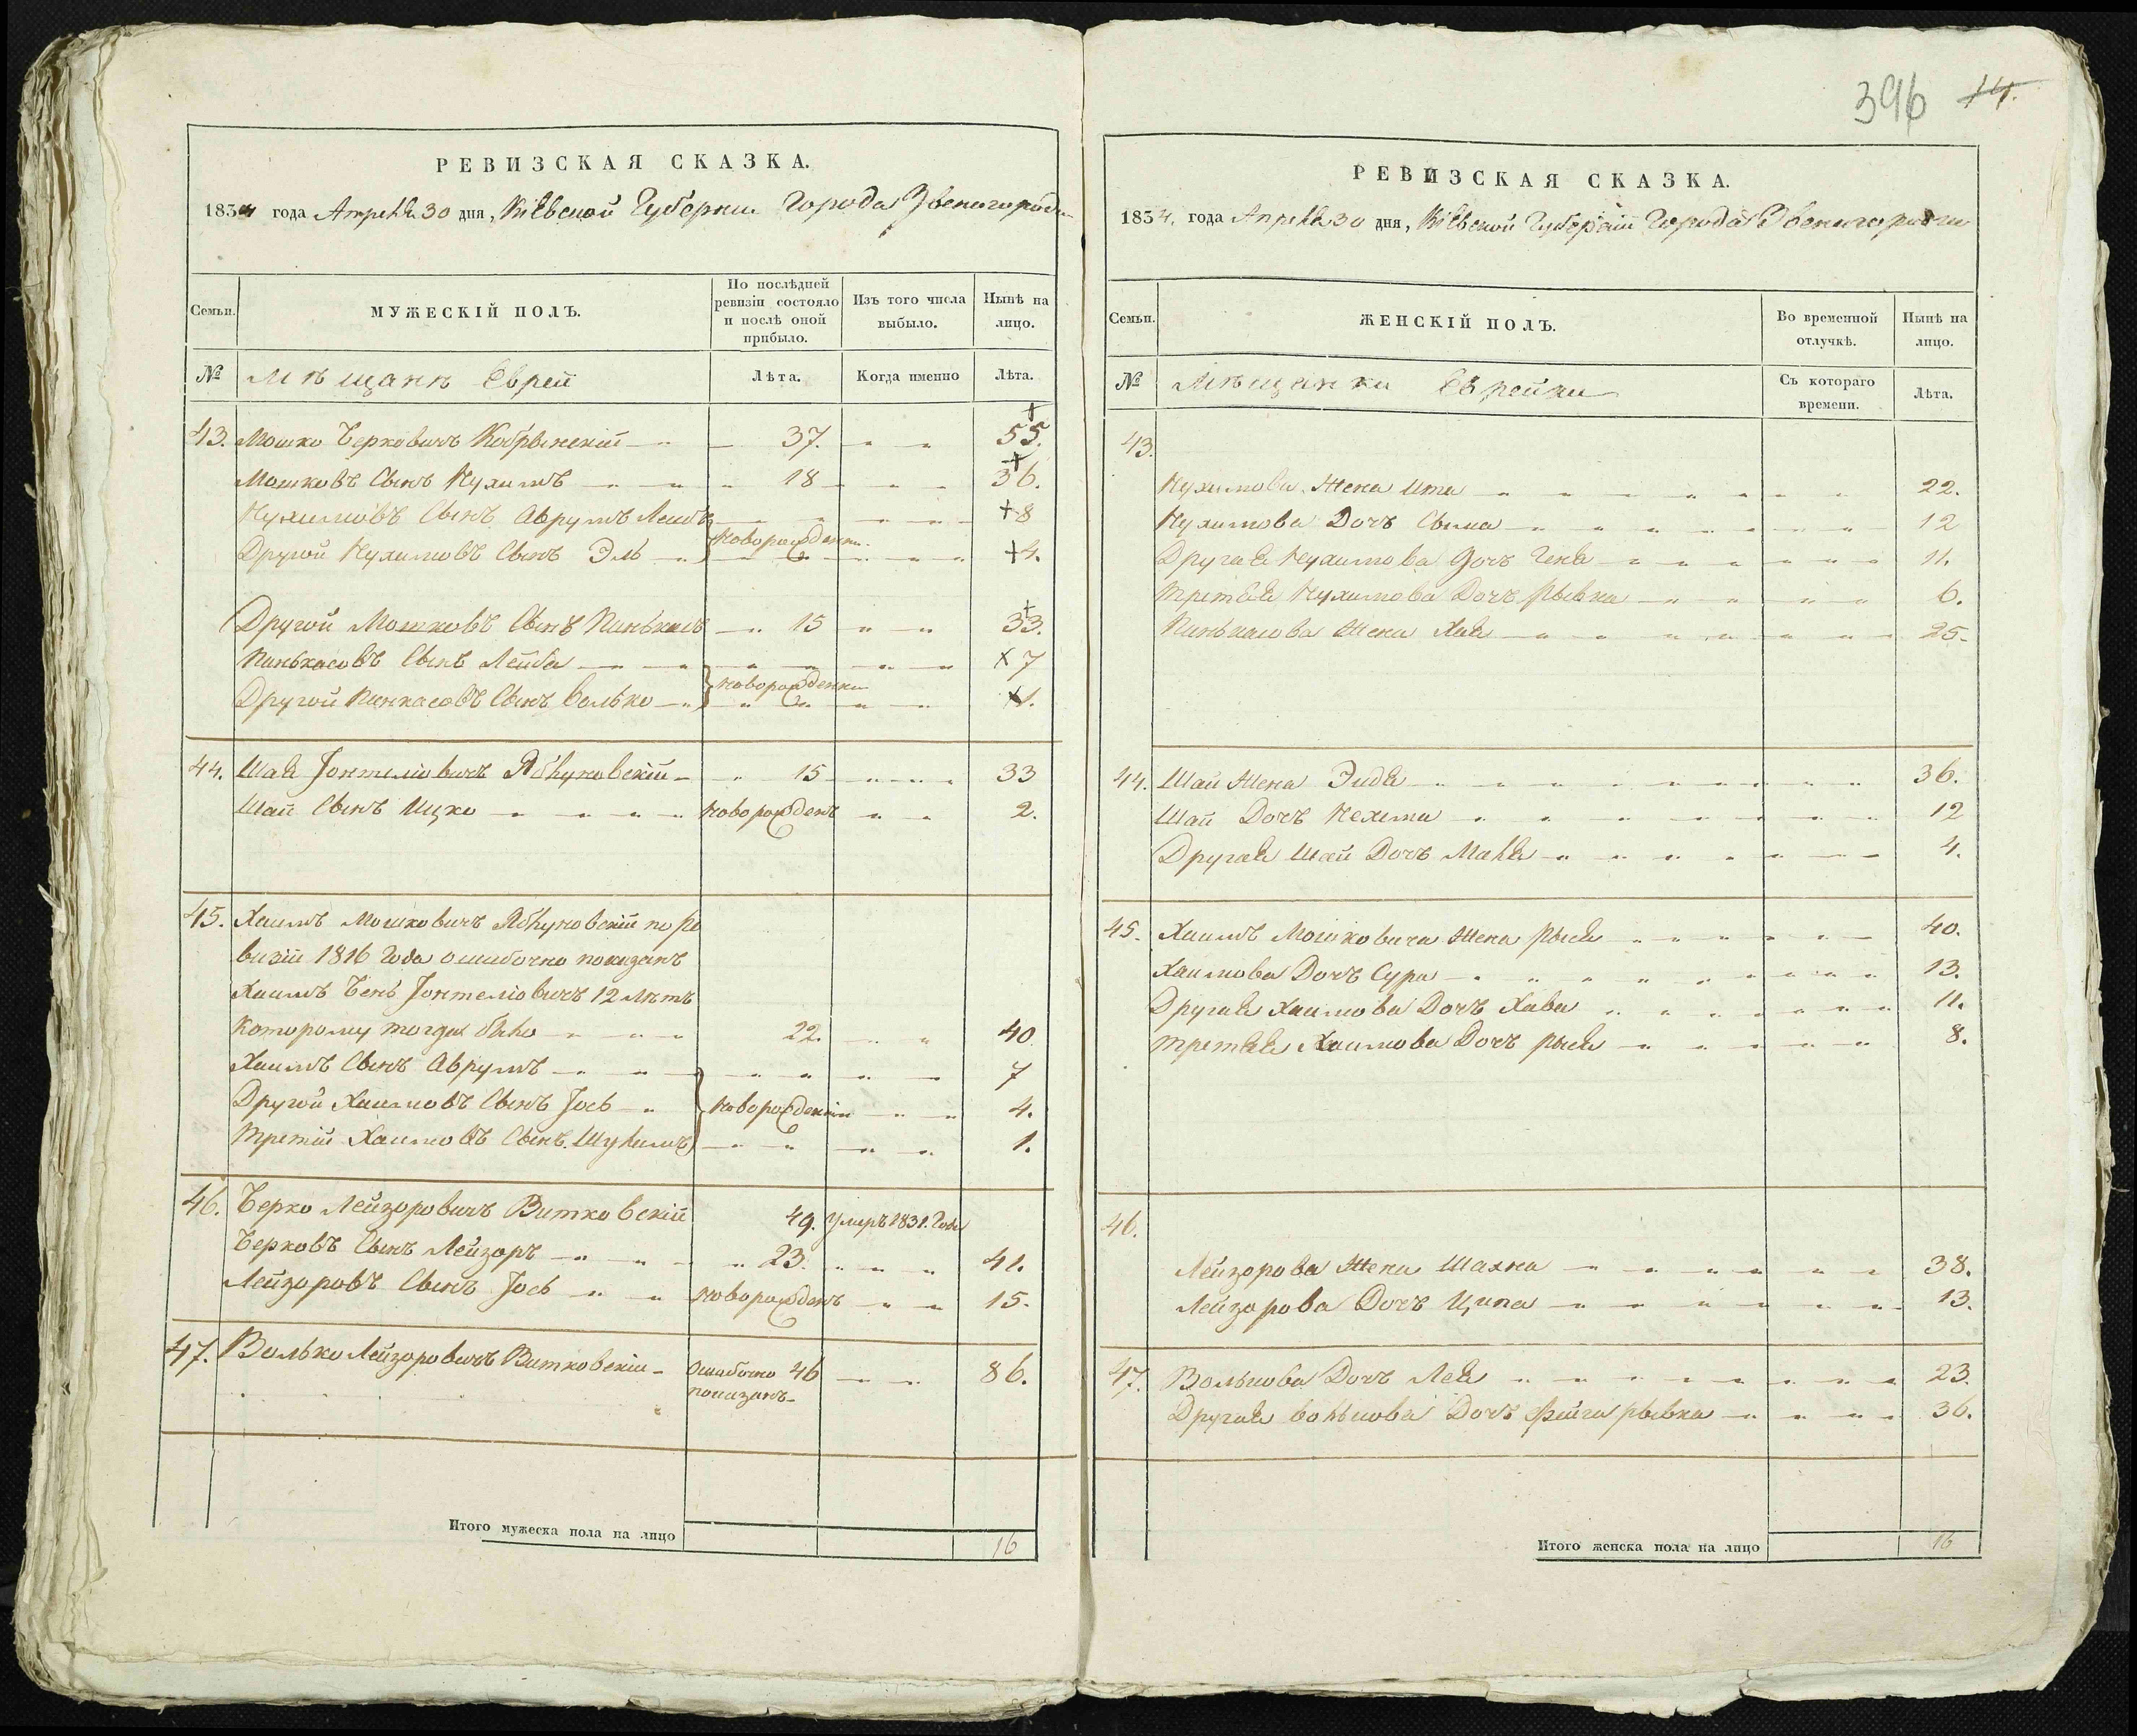 396 14.
РЕВИЗСКАЯ СКАЗКА.
1834 года Апрѣля 30 дня, Кіевской Губерніи Города Звенигородки
Семьи.
МУЖЕСКІЙ ПОЛЪ.
По послѣдней ревизіи состояло и послѣ оной прибыло.
Изъ того числа выбыло.
Нынѣ на лицо.
№ Мѣщане Евреи Лѣта. Когда именно Лѣта.
43. Мошко Берковичъ Кобрынскій 37. 55.
Мошковъ Сынъ Нухимъ 18 36.
Нухимовъ Сынъ Аврумъ Лейбъ 8
новорожденны
Другой Нухимовъ Сынъ Эль 4.
Другой Мошковъ Сынъ Пиньхасъ 15 33.
Пиньхасовъ Сынъ Лейба 7
новорожденны
Другой Пинхасовъ Сынъ Волько 1.
44. Шая Іонтелiовичъ Яблуновскій 15 33
Шаи Сынъ Ицко новорожденъ 2.
45. Хаимъ Мошковичъ Яблуновскій по ре
визіи 1816 Года ошибочно показанъ
Хаимъ Бенъ Іонтелiовичъ 12 лѣтъ
которому тогда было 22. 40
Хаимъ Сынъ Аврумъ 7
Другой Хаимовъ Сынъ Іось новорожденны 4.
Третій Хаимовъ Сынъ Шулимъ 1.
46. Берко Лейзоровичъ Витковскій 49. умеръ 1831. Года
Берковъ Сынъ Лейзоръ 23. 41.
Лейзоровъ Сынъ Іось новорожденъ 15.
47. Волько Лейзоровичъ Витковскій ошибочно 46 86.
показанъ
Итого мужеска пола на лицо 16
РЕВИЗСКАЯ СКАЗКА.
1834. года Апрѣля 30 дня, Кіевской Губерніи Города Звенигородки
Семьи.
ЖЕНСКІЙ ПОЛЪ.
Во временной отлучкѣ.
Нынѣ на лицо.
№ Мѣщанки Еврейки Съ котораго времени. Лѣта.
43.
Нухимова Жена Ита 22.
Нухимова Дочь Сыма 12
Другая Нухимова Дочь Геня 11.
Третяя Нухимова Дочь Рывка 6.
Пиньхасова Жена Хая 25.
44. Шаи Жена Эидя 36.
Шаи Дочъ Нехима 12
Другая Шаи Дочъ Маля 4.
45. Хаимъ Мошковича Жена Рыся 40.
Хаимова Дочъ Сура 13.
Другая Хаимова Дочъ Хава 11.
Третяя Хаимова Дочъ Рыся 8.
46.
Лейзорова Жена Шахна 38.
Лейзорова Дочъ Ципа 13.
47. Волькова Дочъ Лея 23.
Другая Волькова Дочъ Фейга Рывка 36.
Итого женска пола на лицо 16